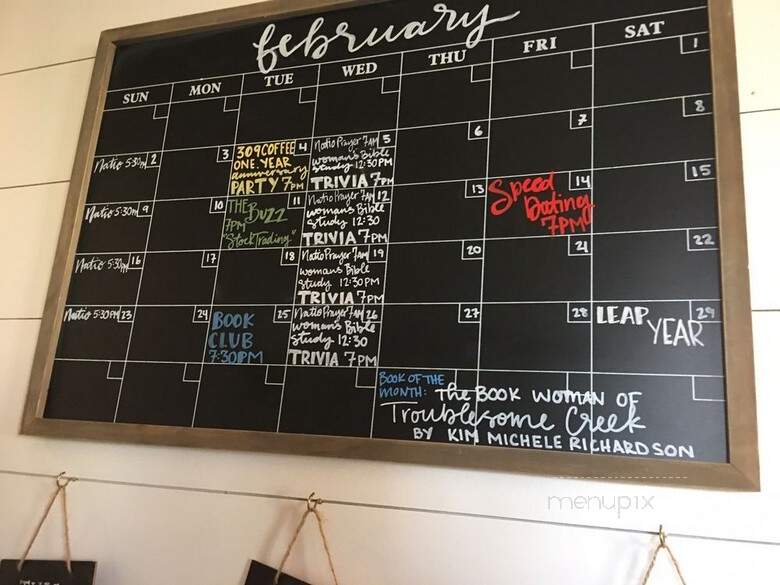 february
SUN MON TUE WED THU FRI SAT
1
Natio 5:30pm 2
3
309 COFFEE 4
ONE YEAR
anniversary
PARTY 7PM
Natio Prayer 7AM 5
woman's Bible
study 12:30PM
TRIVIA 7PM
6
7
8
Natio 5:30m 9
10
THE BUZZ 11
7PM
"Stock Trading"
Natio Prayer 7AM 12
womans Bible
study 12:30
TRIVIA 7PM
13
Speed 14
Dating
7PM
15
Natio 5:30pm 16
17
18
Natio Prayer 7AM 19
womans Bible
study 12:30PM
TRIVIA 7PM
20
21
22
Natio 5:30PM 23
24
BOOK 25
CLUB
7:30PM
Natio Prayer 7AM 26
women's Bible
study 12:30
TRIVIA 7PM
27
28
LEAP 29
YEAR
BOOK OF THE
MONTH: The BOOK WOMAN OF
Troublesome Creek
BY KIM MICHELE RICHARDSON
menupix